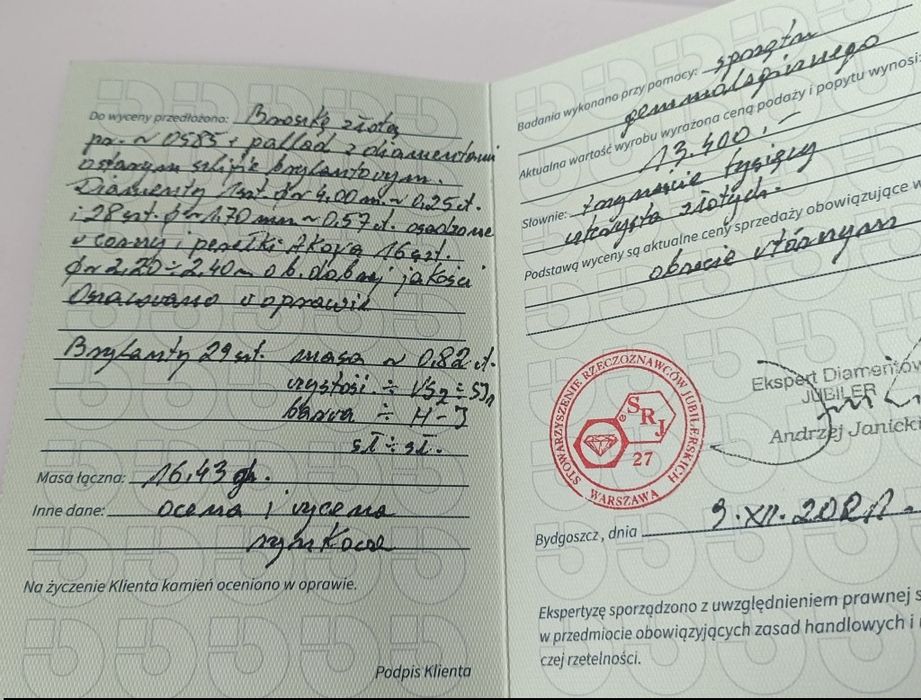 Do wyceny przedłożono: Broszkę złotą
pr. ~ 0585 + pallad z diamentami
o starym szlifie brylantowym.
Diamenty 1szt. φr 4.00 m. ~ 0,25 ct.
i 28 szt. φr 1,70 mm ~ 0,57 ct. osadzone
i perełki Akoya 16 szt.
φr 2.20 ÷ 2.40 m o b. dobrej jakości
Oszacowano w oprawie
Brylanty 29 szt. masa ~ 0,82 ct.
czystość ÷ VS2 ÷ SJ1
barwa ÷ H-J
Masa łączna: 16,43 gr.
Inne dane: ocena i wycena
rynkowa
Na życzenie Klienta kamień oceniono w oprawie.
Podpis Klienta
Badania wykonano przy pomocy: sprzętu
gemmologicznego
Aktualna wartość wyrobu wyrażona ceną podaży i popytu wynosi:
13.400,-
Słownie: trzynaście tysięcy
czterysta złotych.
Podstawą wyceny są aktualne ceny sprzedaży obowiązujące w
obrocie wtórnym
STOWARZYSZENIE RZECZOZNAWCÓW JUBILERSKICH
SRJ
27
WARSZAWA
Ekspert Diamentów
JUBILER
Andrzej Janicki
Bydgoszcz, dnia 9.XII.2021
Ekspertyzę sporządzono z uwzględnieniem prawnej s
w przedmiocie obowiązyjących zasad handlowych i
czej rzetelności.